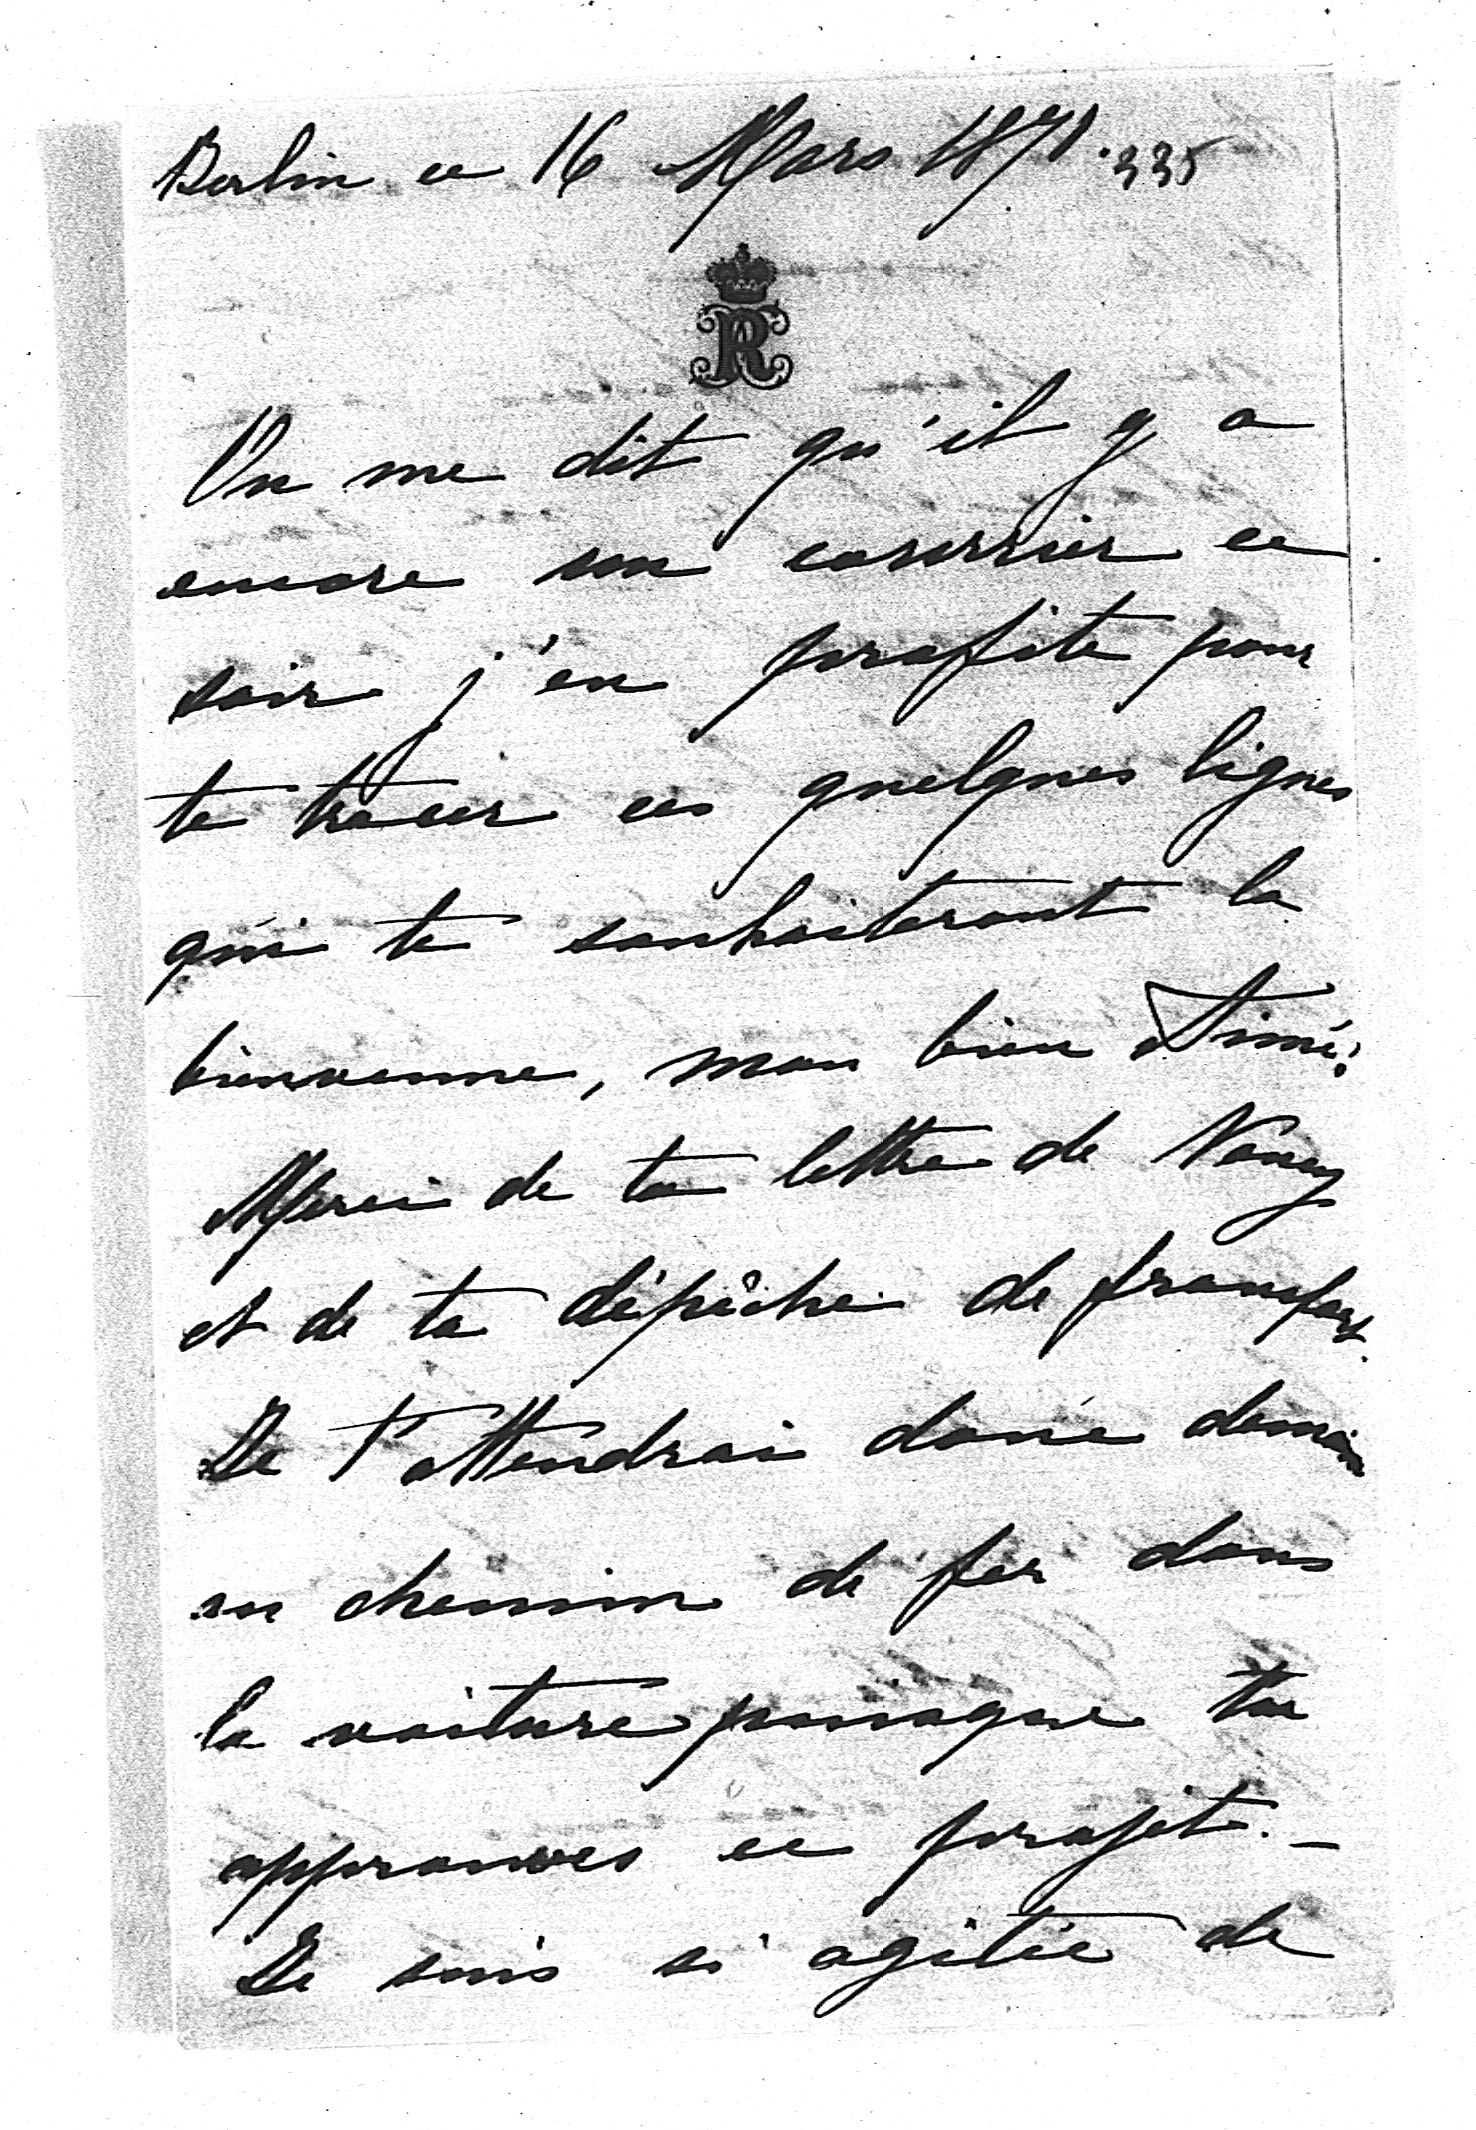 Berlin ce 16 Mars 1871. 335
R
On me dit qu'il y a
encore un courrier ce
soir j'en profite pour
te tracer ces quelques lignes
qui te souhaiteront la
bienvenue, mon bien Aimé!
Merci de ta lettre de Nancy
et de ta dépêche de francfort.
Je t'attendrai donc demain
en chemin de fer dans
la voiture puisque tu
approuves ce projet. –
Je suis si agitée de